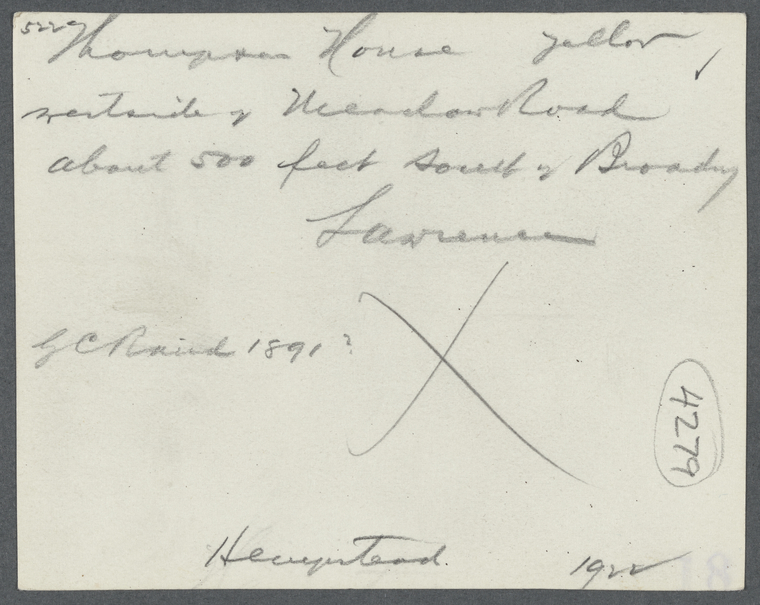 Thompson House yellow
westside of Meadow Road
about 500 feet south of Broadwy
Lawrence
G C Raind 1891?
4279
Hempstead 1922